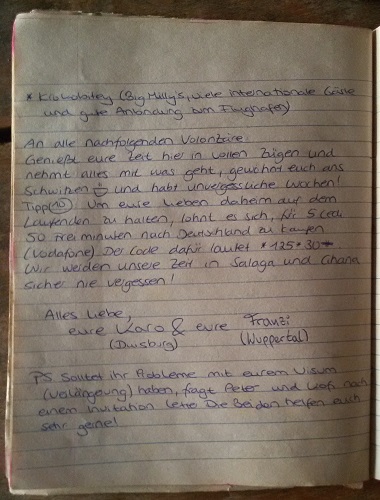 * Krokobitey (Big Milly's, viele internationale Gäste
und gute Anbindung zum Flughafen)
An alle nachfolgenden Volontäre:
Genießt eure Zeit hier in vollen Zügen und
nehmt alles mit was geht, gewöhnt euch ans
Schwitzen und habt unvergessliche Wochen!
Tipp(10) Um eure Lieben daheim auf dem
Laufenden zu halten, lohnt es sich, für 5 Cedi
50 Freiminuten nach Deutschland zu kaufen
(Vodafone) Der Code dafür lautet *125*30*.
Wir werden unsere Zeit in Salaga und Ghana
sicher nie vergessen!
Alles Liebe,
eure Karo & eure Franzi
(Duisburg) (Wuppertal)
PS Solltet ihr Probleme mit eurem Visum
(Verlängerung) haben, fragt Peter und Kofi nach
einem Invitation Letter Die Beiden helfen euch
sehr gerne!